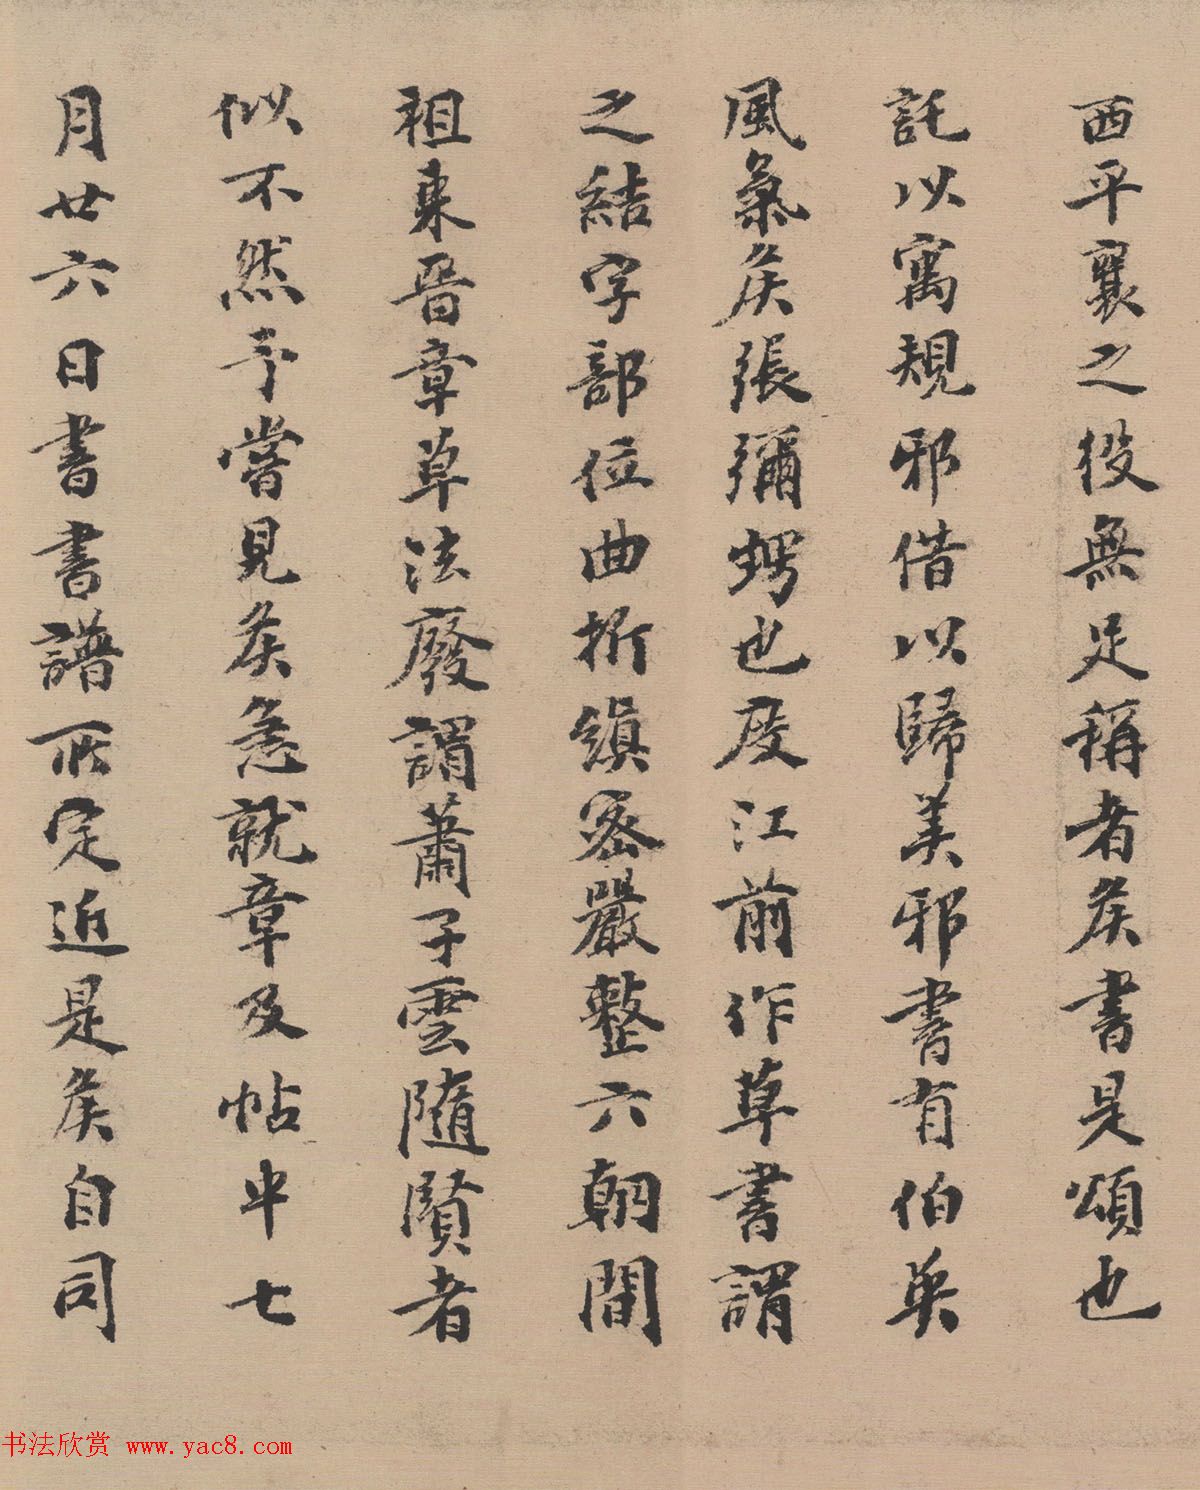 西平襄之役無足稱者矦書是頌也
託以寓規邪借以歸美邪書有伯英
風氣矦張彌蝑也段江前作草書謂
之結字部位曲折縝密嚴整六朝間
祖東晉章草法廢謂蕭子雲隨賢者
似不然予嘗見矦急就章及帖中七
月廿六日書書譜所定近是矦自司
书法欣赏 www.yac8.com